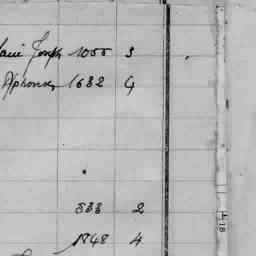 Joseph 1055 3
Alphonse 1632 4
833 2
1848 4